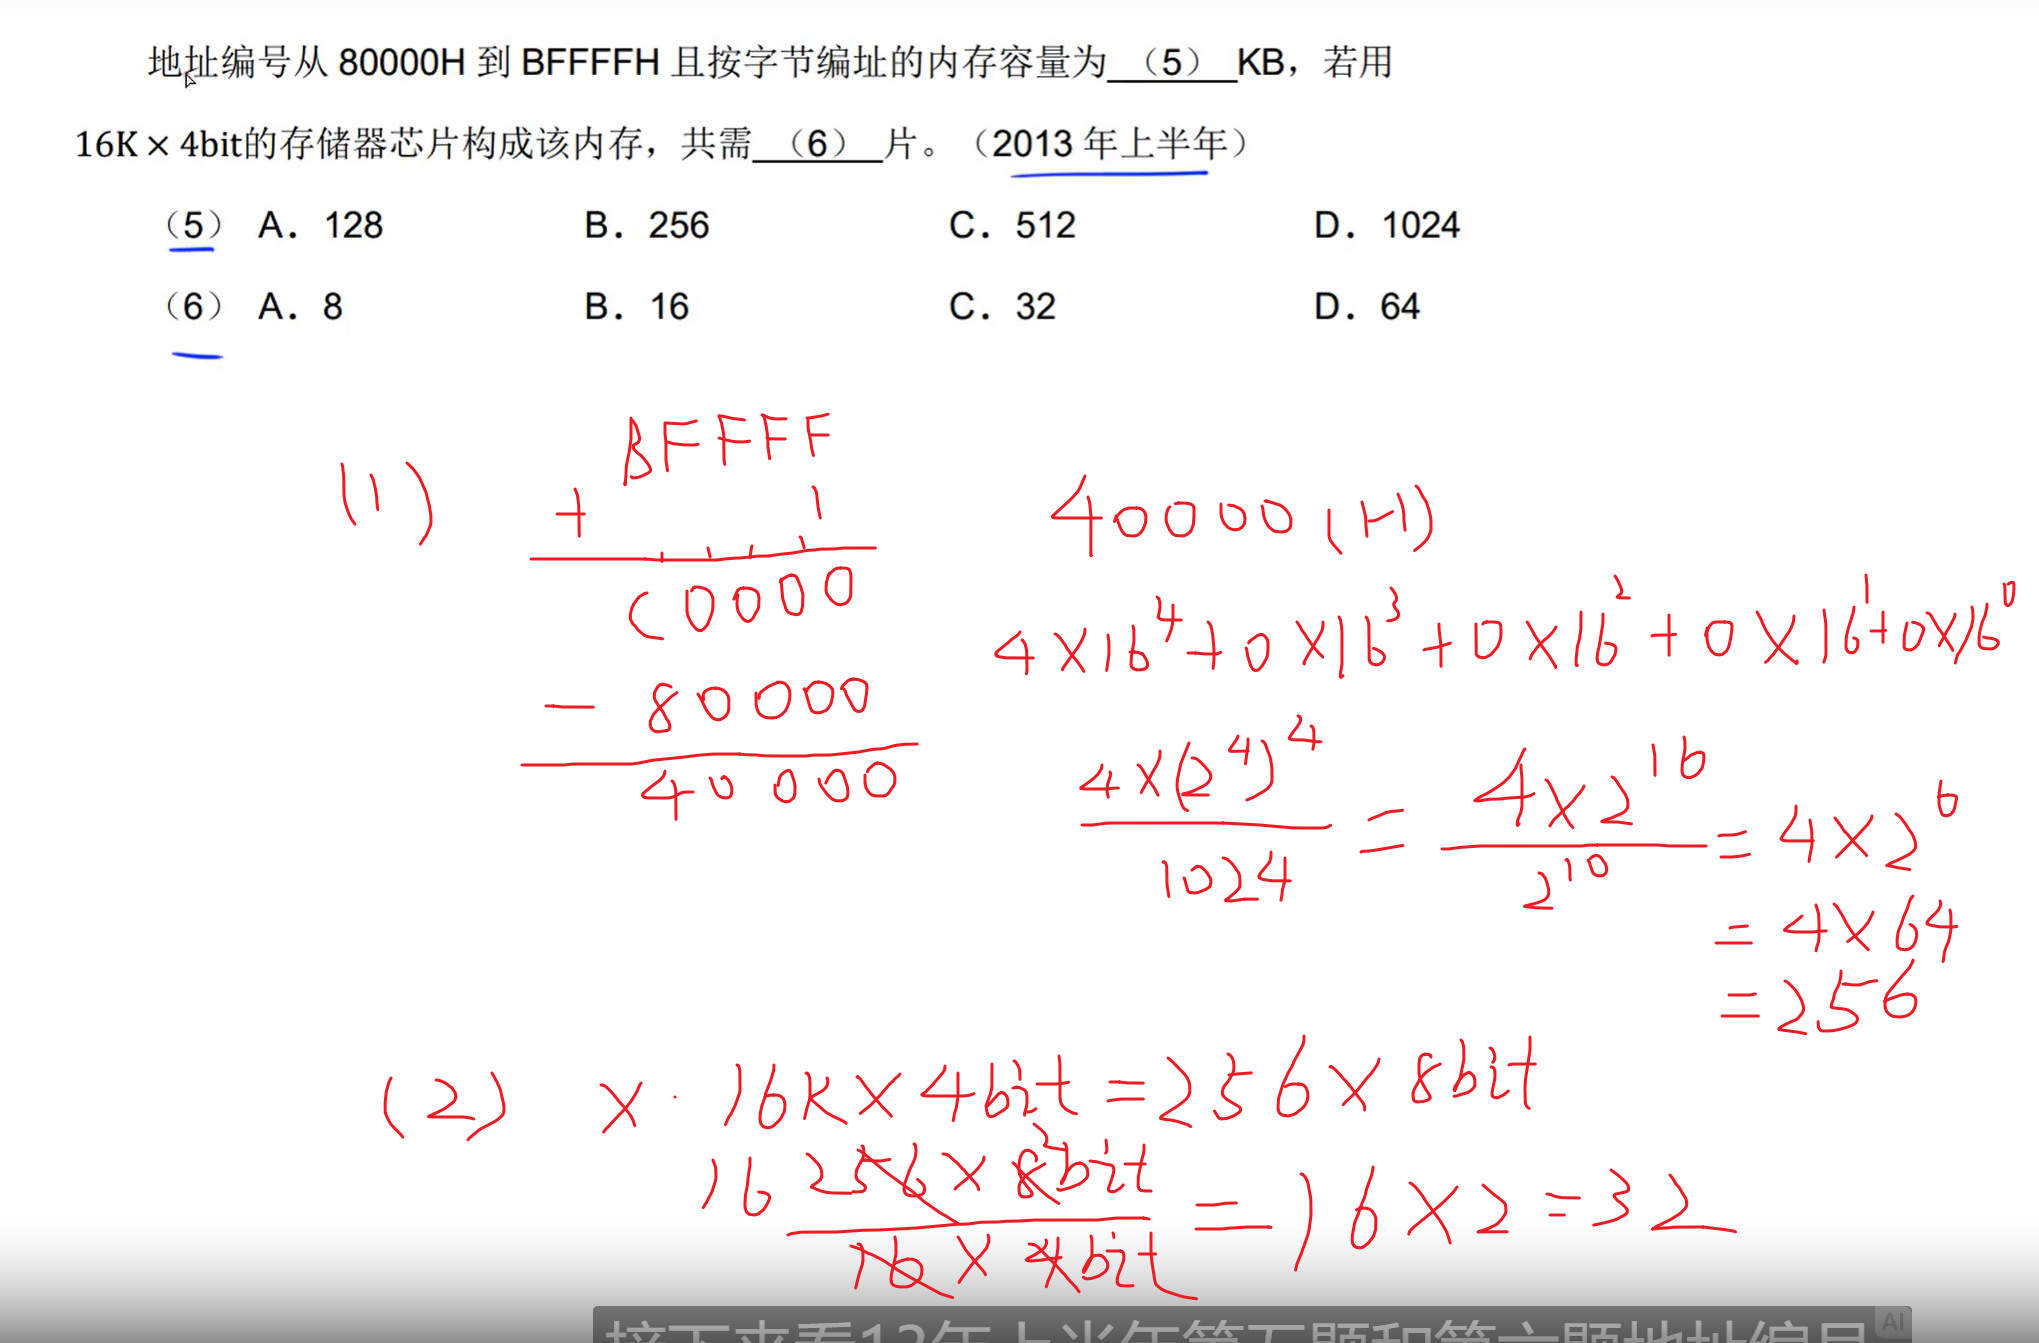 地址编号从 80000H 到 BFFFFH 且按字节编址的内存容量为 （5） KB，若用
16K × 4bit的存储器芯片构成该内存，共需 （6） 片。（2013 年上半年）
（5） A． 128 B． 256 C． 512 D． 1024
（6） A． 8 B． 16 C． 32 D． 64
(1)
BFFFF
+ 1
C0000
- 80000
40000
40000(H)
4×16^4+0×16^3+0×16^2+0×16^1+0×16^0
4×(2^4)^4
1024
=
4×2^16
2^10
=4×2^6
=4×64
=256
(2) x·16K×4bit=256×8bit
16 256×8bit 2
16×4bit
=16×2=32
接下来看13年上半年第五题和第六题地址编号
AI